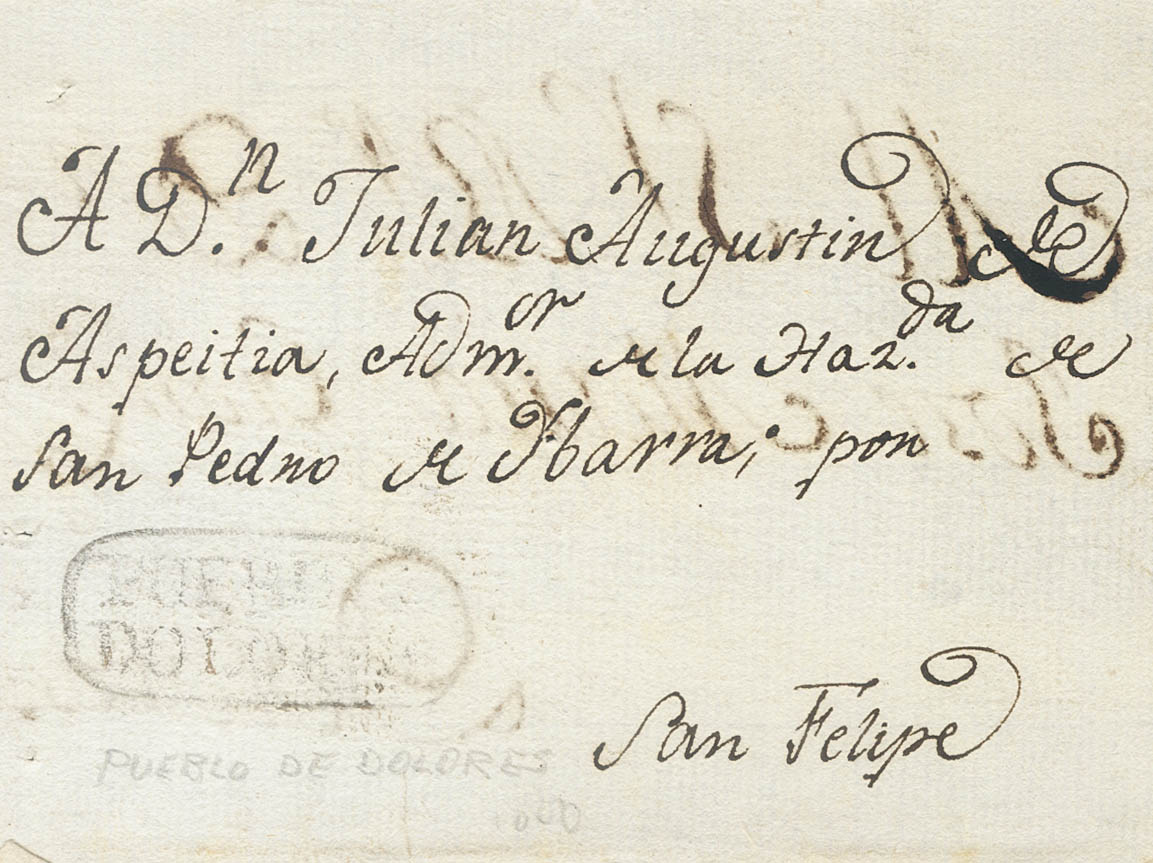 A D.n Julian Augustin de
Aspeitia, Adm.or de la Haz.da de
San Pedro de Ybarra, por
PUEBLO
DOLORES
San Felipe
PUEBLO DE DOLORES